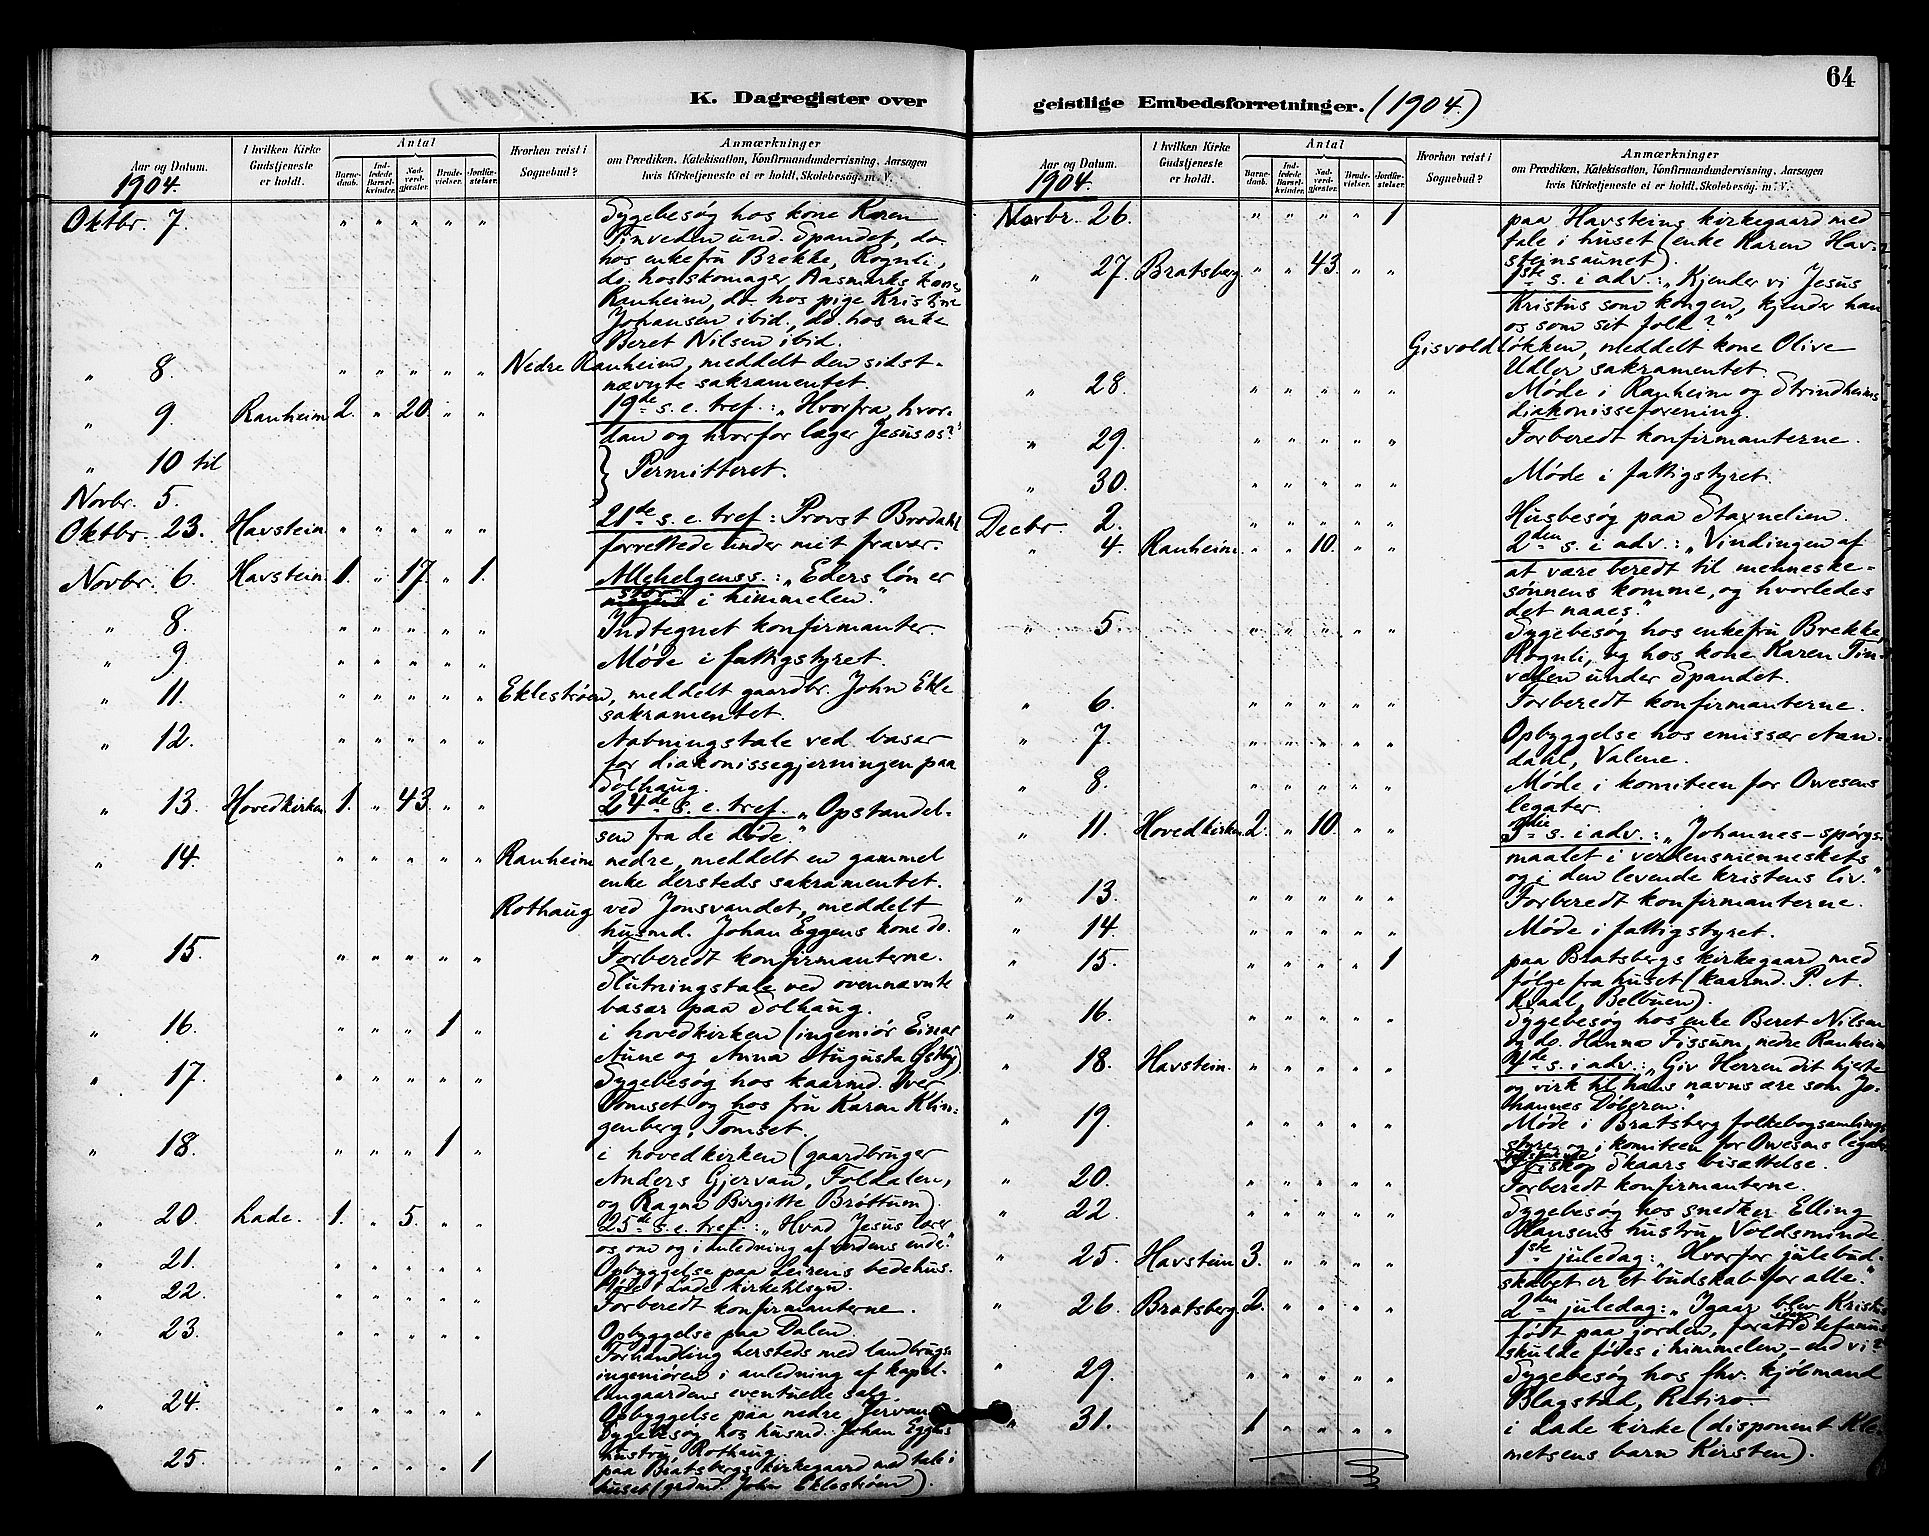 64
K. Dagregister over
geistlige Embedsforretninger. (1904.)
Aar og Datum.
1904.
I hvilken Kirke Gudstjeneste er holdt.
Antal
Barnedaab.
Indledede Barselkvinder.
Nadverdgjester.
Brudevielser.
Jordfæstelser.
Hvorhen reist i Sognebud?
Anmærkninger
om Prædiken, Katekisation, Konfirmandundervisning, Aarsagen
hvis Kirketjeneste ei er holdt, Skolebesøg m. V.
Oktbr. 7. " " " " " Sygebesøg hos kone Karen
Tinveden und. Spandet, do.
hos enkefru Brekke, Rognli,
do. hos skomager Aasmarks kone,
Ranheim, do. hos pige Kristine
Johansen ibid., do. hos enke
Beret Nilsen ibid.
" 8. " " " " " Nedre Ranheim, meddelt den sidst-
nævnte sakramentet.
" 9. Ranheim 2. " 20. " " 19de s. e. tref.: "Hvorfra, hvor-
dan og hvorfor læger Jesus os?"
" 10 til
Novbr. 5. Permitteret.
Oktbr. 23. Havstein " " " " " 21de s. e. tref: Provst Brodahl
forrettede under mit fravær.
Novbr. 6. Havstein. 1. " 17. " 1. Allehelgenss.: "Eders løn er
stor i himmelen"
" 8. " " " " " Indtegnet konfirmanter.
" 9. " " " " " Møde i fattigstyret.
" 11. " " " " " Eklestrøen, meddelt gaardbr. John Ekle
sakramentet.
" 12. " " " " " Aabningstale ved basar
for diakonissegjerningen paa
Solhaug.
" 13. Hovedkirken 1. " 43. " " 24de s. e. tref. "Opstandel-
sen fra de døde."
" 14. " " " " " Ranheim nedre, meddelt en gammel
enke dersteds sakramentet.
Rothaug ved Jonsvandet, meddelt
husmd. Johan Eggens kone do.
" 15. " " " " " Forberedt konfirmanterne.
Slutningstale ved ovennævnte
basar paa Solhaug.
" 16. " " " 1 " i hovedkirken (ingeniør Einar
Aune og Anna Augusta Østby)
" 17. " " " " " Sygebesøg hos kaarmd. Iver
Tomset og hos fru Karen Klin-
genberg, Tomset.
" 18. " " " 1 " i hovedkirken (gaardbruger
Anders Gjervan, Foldalen,
og Ragna Birgitte Brøttum).
" 20. Lade. 1. " 5. " " 25de s. e. tref.: "Hvad Jesus lærer
os om og i anledning af verdens ende."
" 21. " " " " " Opbyggelse paa Leirens bedehus.
Møde i Lade kirketilsyn.
" 22. " " " " " Forberedt konfirmanterne.
" 23. " " " " " Opbyggelse paa Dalen.
Forhandling hersteds med landbrugs-
ingeniøren i anledning af kapel-
langaardens eventuelle salg.
" 24. " " " " " Opbyggelse paa nedre Jervan
Sygebesøg hos husmd. Johan Eggens
hustru Rothaug.
" 25. " " " " 1 paa Bratsbergs kirkegaard med tale i
huset (grdmd. John Eklestrøen).
Aar og Datum.
1904.
I hvilken Kirke Gudstjeneste er holdt.
Antal
Barnedaab.
Indledede Barselkvinder.
Nadverdgjester.
Brudevielser.
Jordfæstelser.
Hvorhen reist i Sognebud?
Anmærkninger
om Prædiken, Katekisation, Konfirmandundervisning, Aarsagen
hvis Kirketjeneste ei er holdt, Skolebesøg m. V.
Novbr. 26. " " " " 1 paa Havsteins kirkegaard med
tale i huset (enke Karen Hav-
steinsaunet).
" 27. Bratsberg " " 43. " " 1ste s. i adv.: "Kjender vi Jesus
Kristus som kongen, kjender han
os som sit folk?"
Gisvoldløkken, meddelt kone Olive
Udler sakramentet.
" 28. " " " " " Møde i Ranheim og Strindheims
diakonisseforening.
" 29. " " " " " Forberedt konfirmanterne.
" 30. " " " " " Møde i fattigstyret.
Decbr. 2. " " " " " Husbesøg paa Staxnelien.
" 4. Ranheim. " " 10. " " 2den s. i adv.: "Vindingen af
at være beredt til menneske-
sønnens komme, og hvorledes
det naaes."
" 5. " " " " " Sygebesøg hos enkefru Brekke,
Rognli, og hos kone Karen Tin-
veden under Spandet.
" 6. " " " " " Forberedt konfirmanterne.
" 7. " " " " " Opbyggelse hos emissær Aan-
dahl, Valene.
" 8. " " " " " Møde i komiteen for Owesens
legater.
" 11. Hovedkirken 2. " 10. " " 3die s. i adv.: "Johannes-spørgs-
maalet i verdensmenneskets
og i den levende kristens liv."
" 13. " " " " " Forberedt konfirmanterne.
" 14. " " " " " Møde i fattigstyret.
" 15. " " " " 1 paa Bratsbergs kirkegaard med
følge fra huset (kaarmd. P. A.
Kvaal, Belbuen).
" 16. " " " " " Sygebesøg hos enke Beret Nilsen
og do. Hanna Fissum, nedre Ranheim
" 18. Havstein. " " " " " 4de s. i adv.: "Giv Herren dit hjerte
og virk til hans navns ære som Jo-
hannes Døberen."
" 19. " " " " " Møde i Bratsberg folkebogsamlings
styre og i komiteen for Owesens legater
Biskop Skaars bisættelse.
" 20. " " " " " Forberedt konfirmanterne.
" 22. " " " " " Sygebesøg hos snedker Elling
Hansens hustru Voldsminde.
" 25. Havstein 3. " " " " 1ste juledag: "Hvorfor julebud-
skabet er et budskab for alle."
" 26. Bratsberg 2. " " " " 2den juledag: "Igaar blev Kristus
født paa jorden, forat idag Stefanus
skulde fødes i himmelen, - end vi?
" 29. " " " " " Sygebesøg hos fhv. kjøbmand
Blagstad, Retiro.
" 31. 1 " " " " i Lade kirke (disponent Kle-
metsens barn Kirsten).